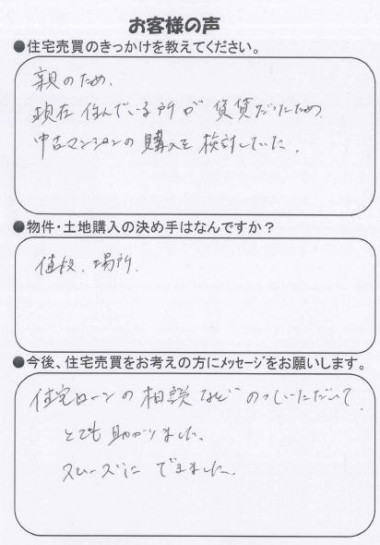 お客様の声
●住宅売買のきっかけを教えてください。
親のため、
現在住んでいる所が賃貸だったため
中古マンションの購入を検討していた。
●物件・土地購入の決め手はなんですか？
値段、場所、
●今後、住宅売買をお考えの方にメッセージをお願いします。
住宅ローンの相談などのっていただいて、
とても助かりました。
スムーズにできました。